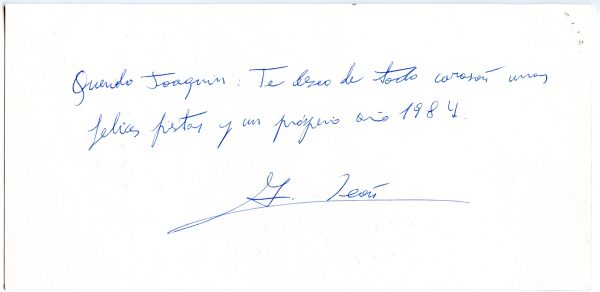 Querido Joaquin: Te deseo de todo corazón unas
felices fiestas y un próspero año 1984.
León